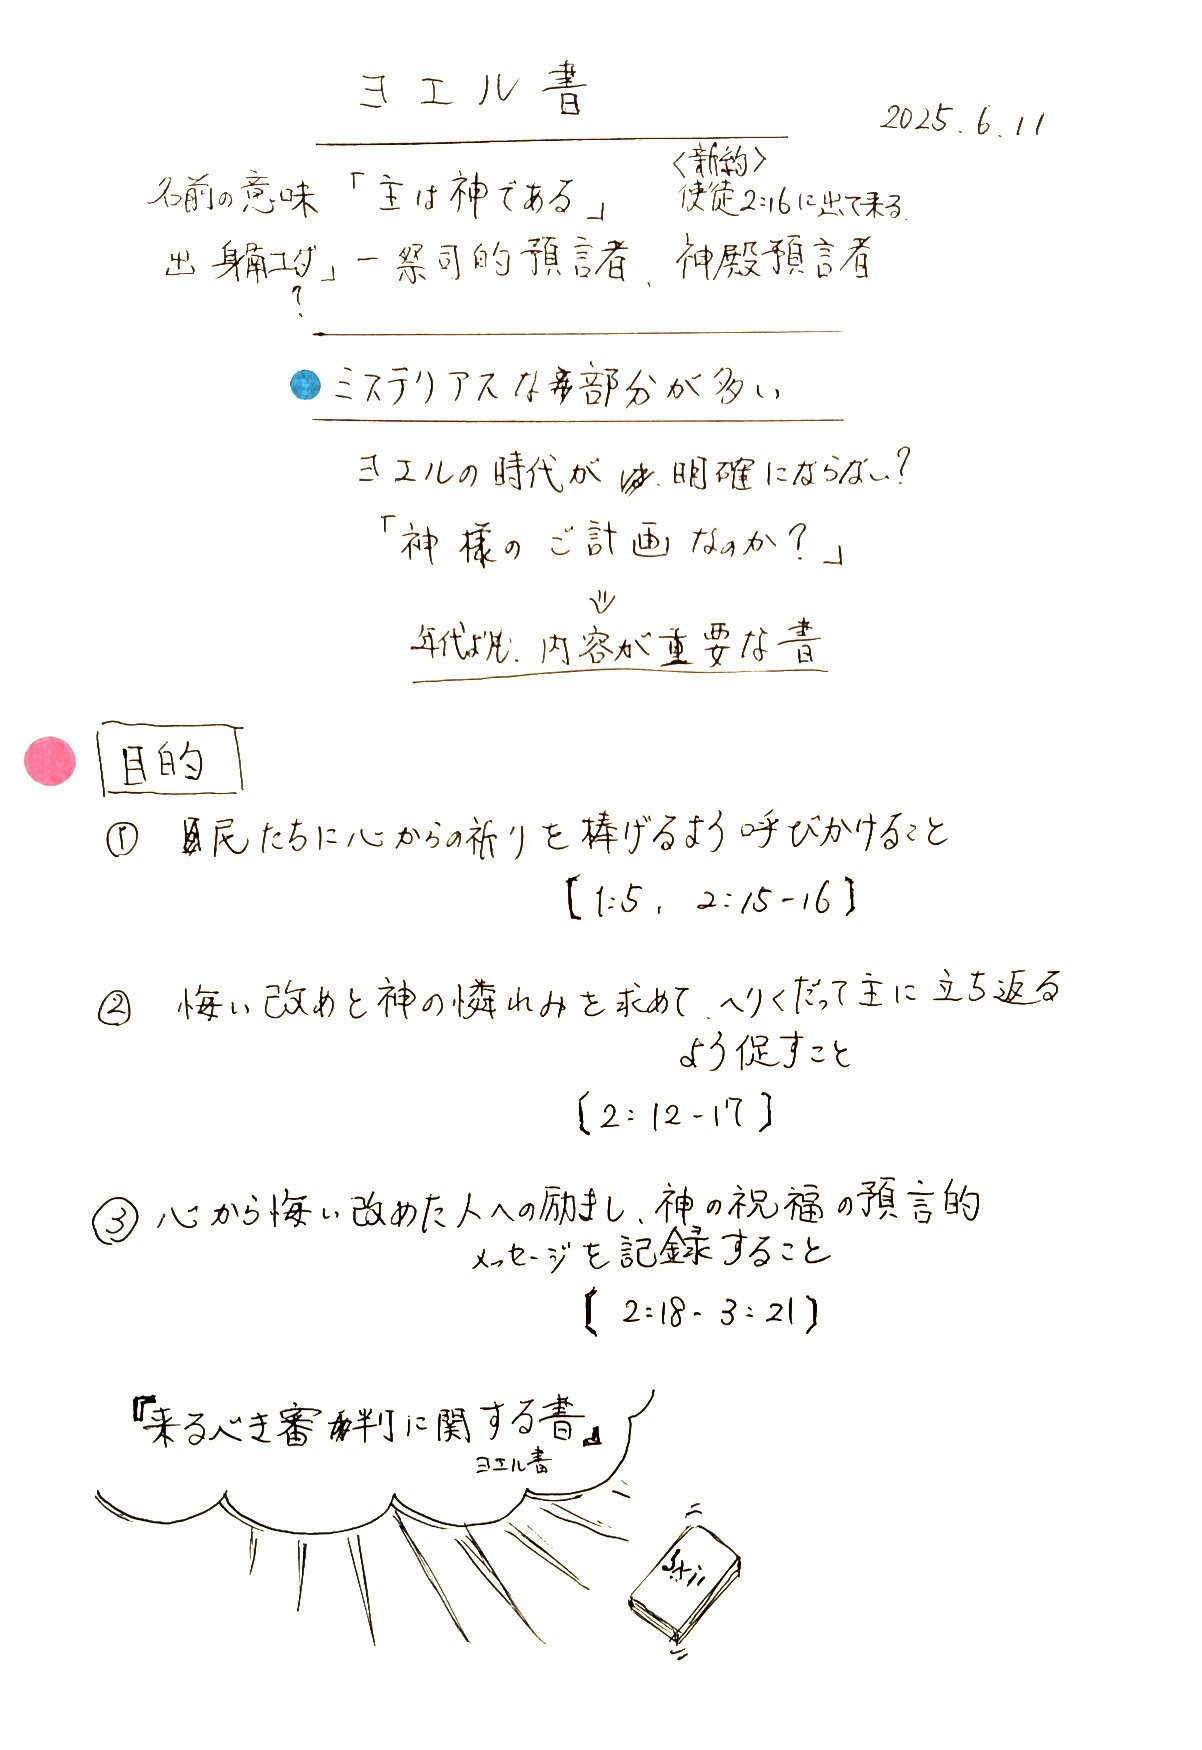 ヨエル書
2025.6.11
〈新約〉
名前の意味「主は神である」 使徒2:16に出て来る.
出身南ユダ」ー祭司的預言者、神殿預言者
?
ミステリアスな部分が多い
ヨエルの時代が 明確にならない?
「神様のご計画なのか?」
⇓
年代よりも、内容が重要な書
目的
① 民たちに心からの祈りを捧げるよう呼びかけること
[1:5, 2:15-16]
② 悔い改めと神の憐れみを求めて、へりくだって主に立ち返る
よう促すこと
[2:12-17]
③ 心から悔い改めた人への励まし、神の祝福の預言的
メッセージを記録すること
[2:18-3:21]
『来るべき審判に関する書』
ヨエル書